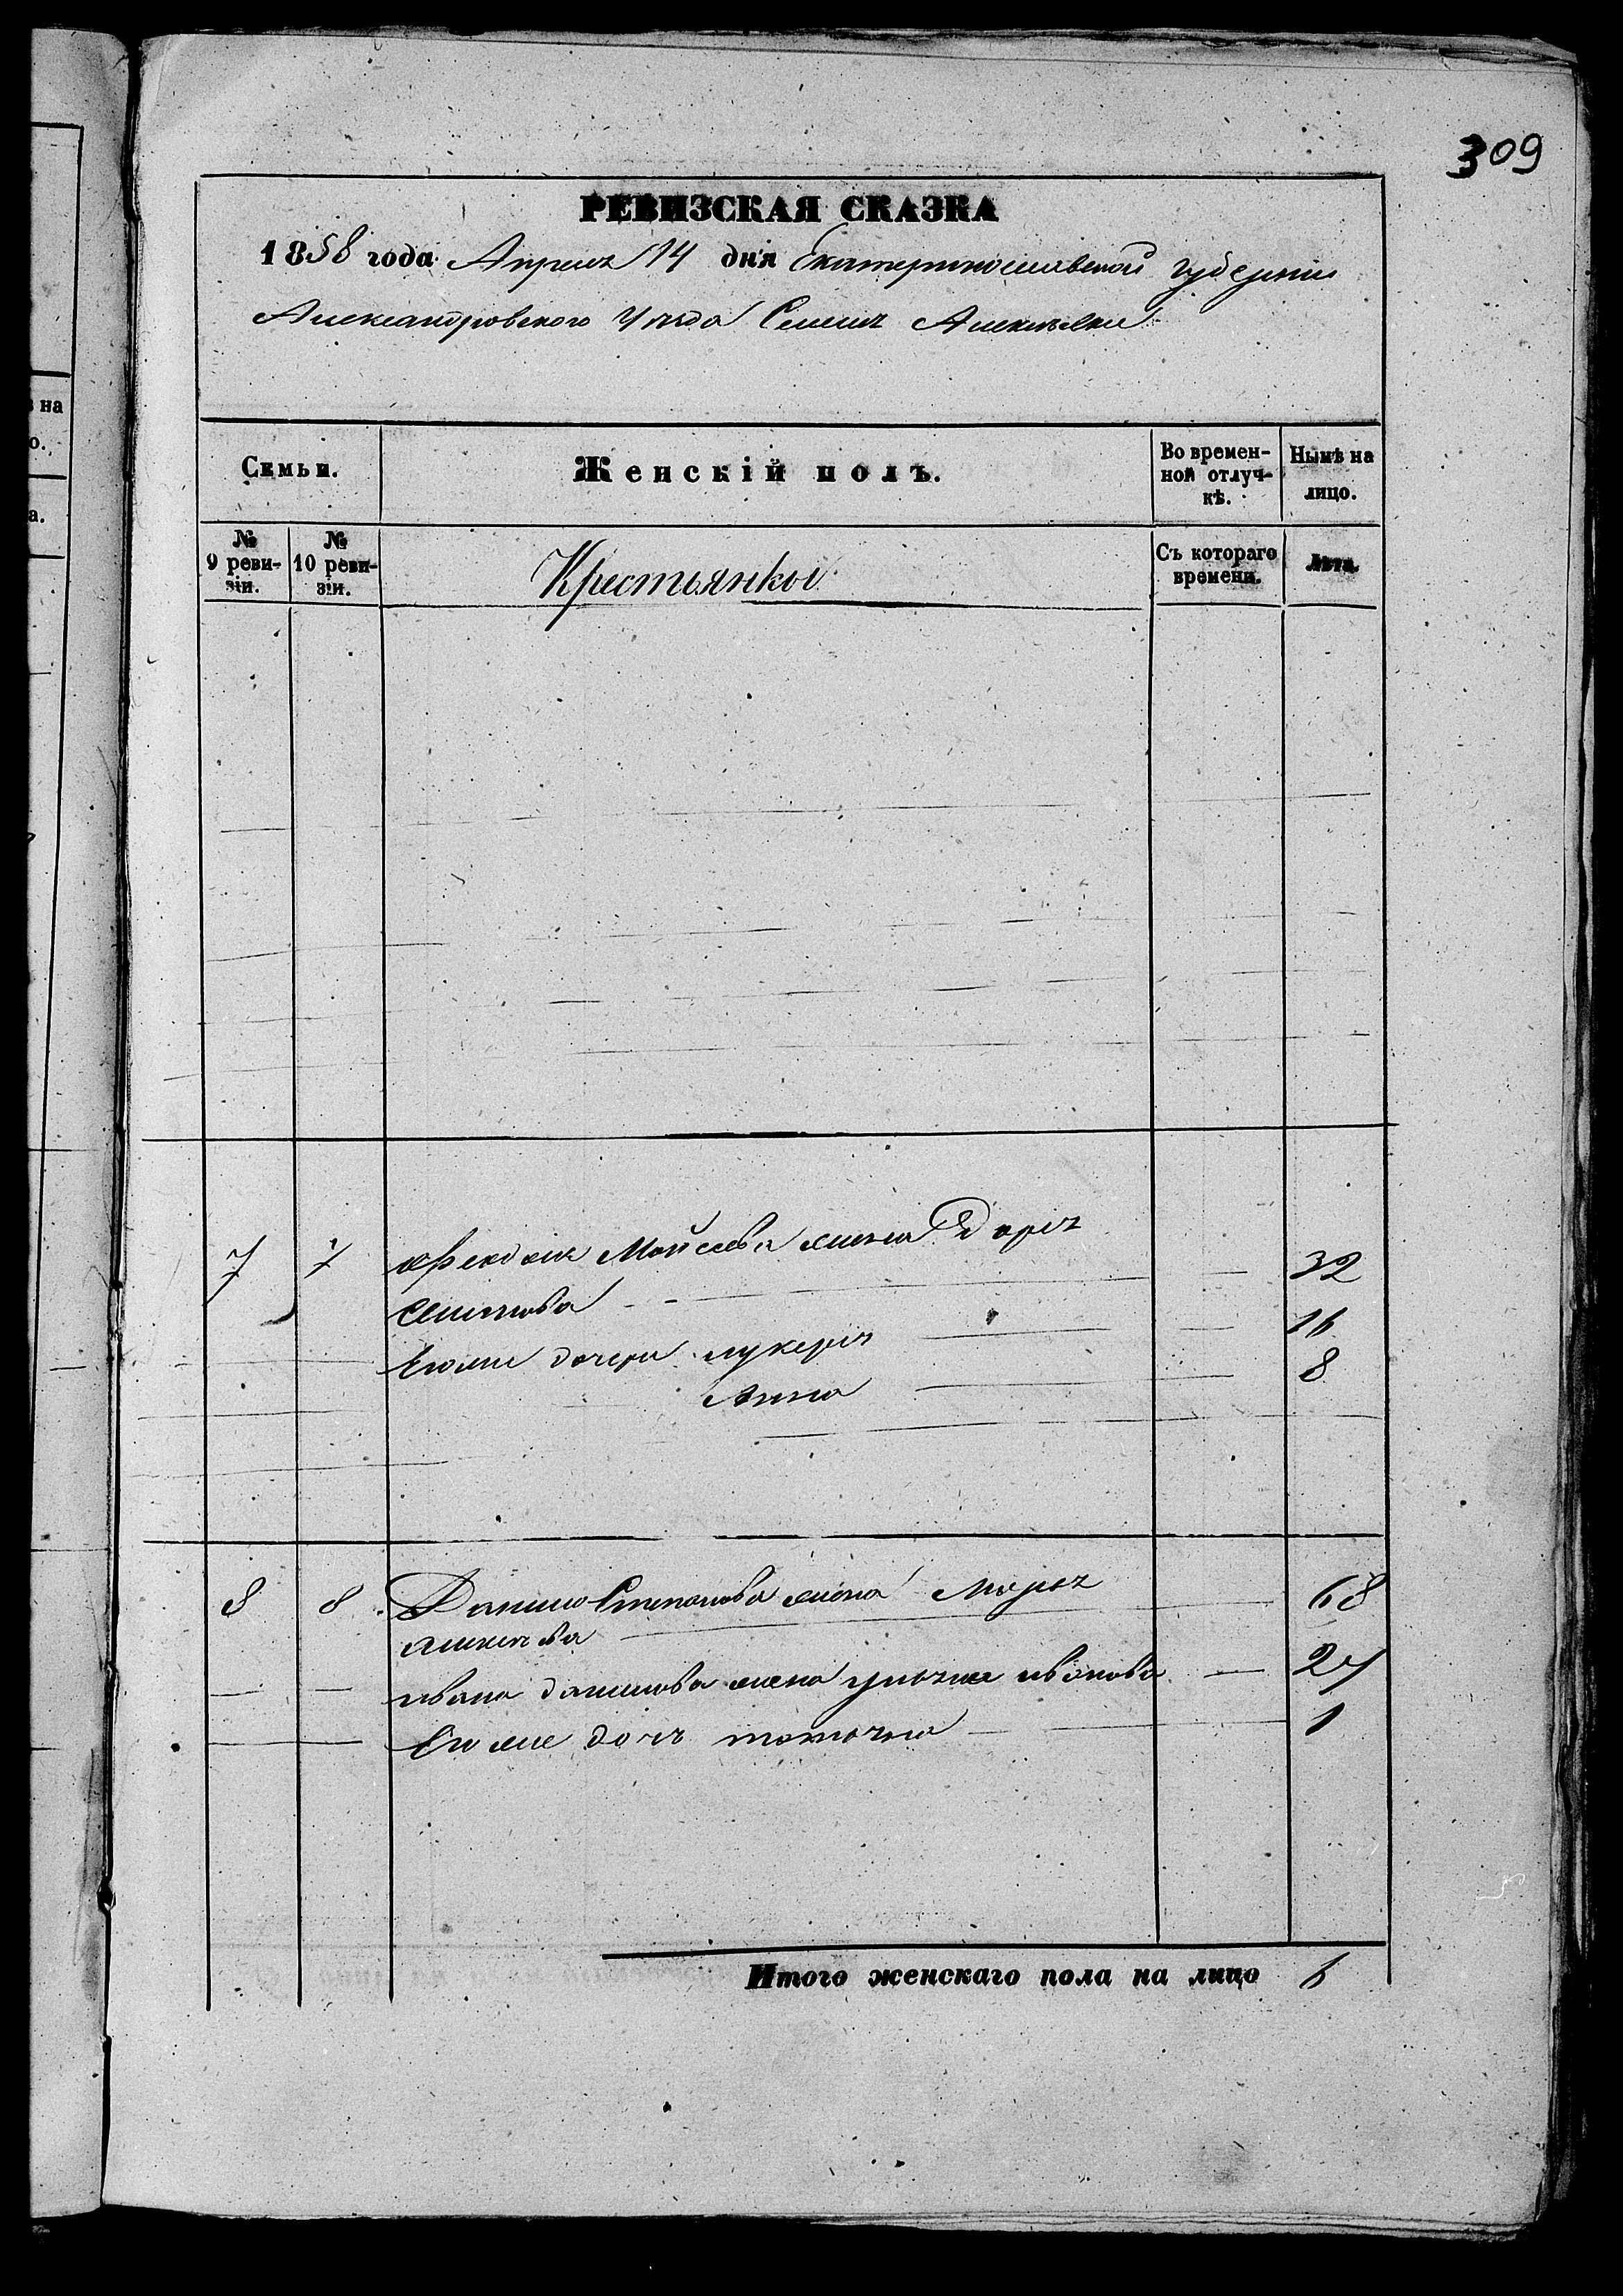 309
РЕВИЗСКАЯ СКАЗКА
1858 года Апреля 14 дня Екатеринославской губернии
Александровского Уезда Алексеевки
Семьи.
Женскій полъ.
Во времен-
ной отлуч-
кѣ.
Нынѣ на
лицо.
№
9 реви-
зіи.
№
10 реви-
зіи.
Крестьянки
Съ котораго
времени.
Лѣта.
7 7 Мойсеева жена Дарія 32
Его же дочери лукерія 16
Анна 8
8 8 Данило Степанова жена Марія 68
алексѣева
ивана данилова жена ульяна иванова 27
Его же дочь татьяна 1
Итого женскаго пола на лицо 6
на
о.
а.